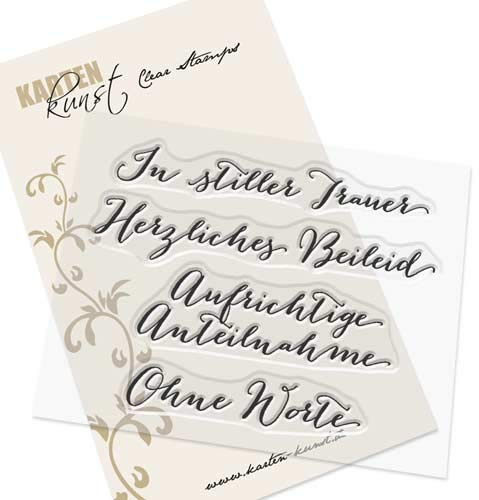 KARTEN
kunst Clear Stamps
In stiller Trauer
Herzliches Beileid
Aufrichtige
Anteilnahme
Ohne Worte